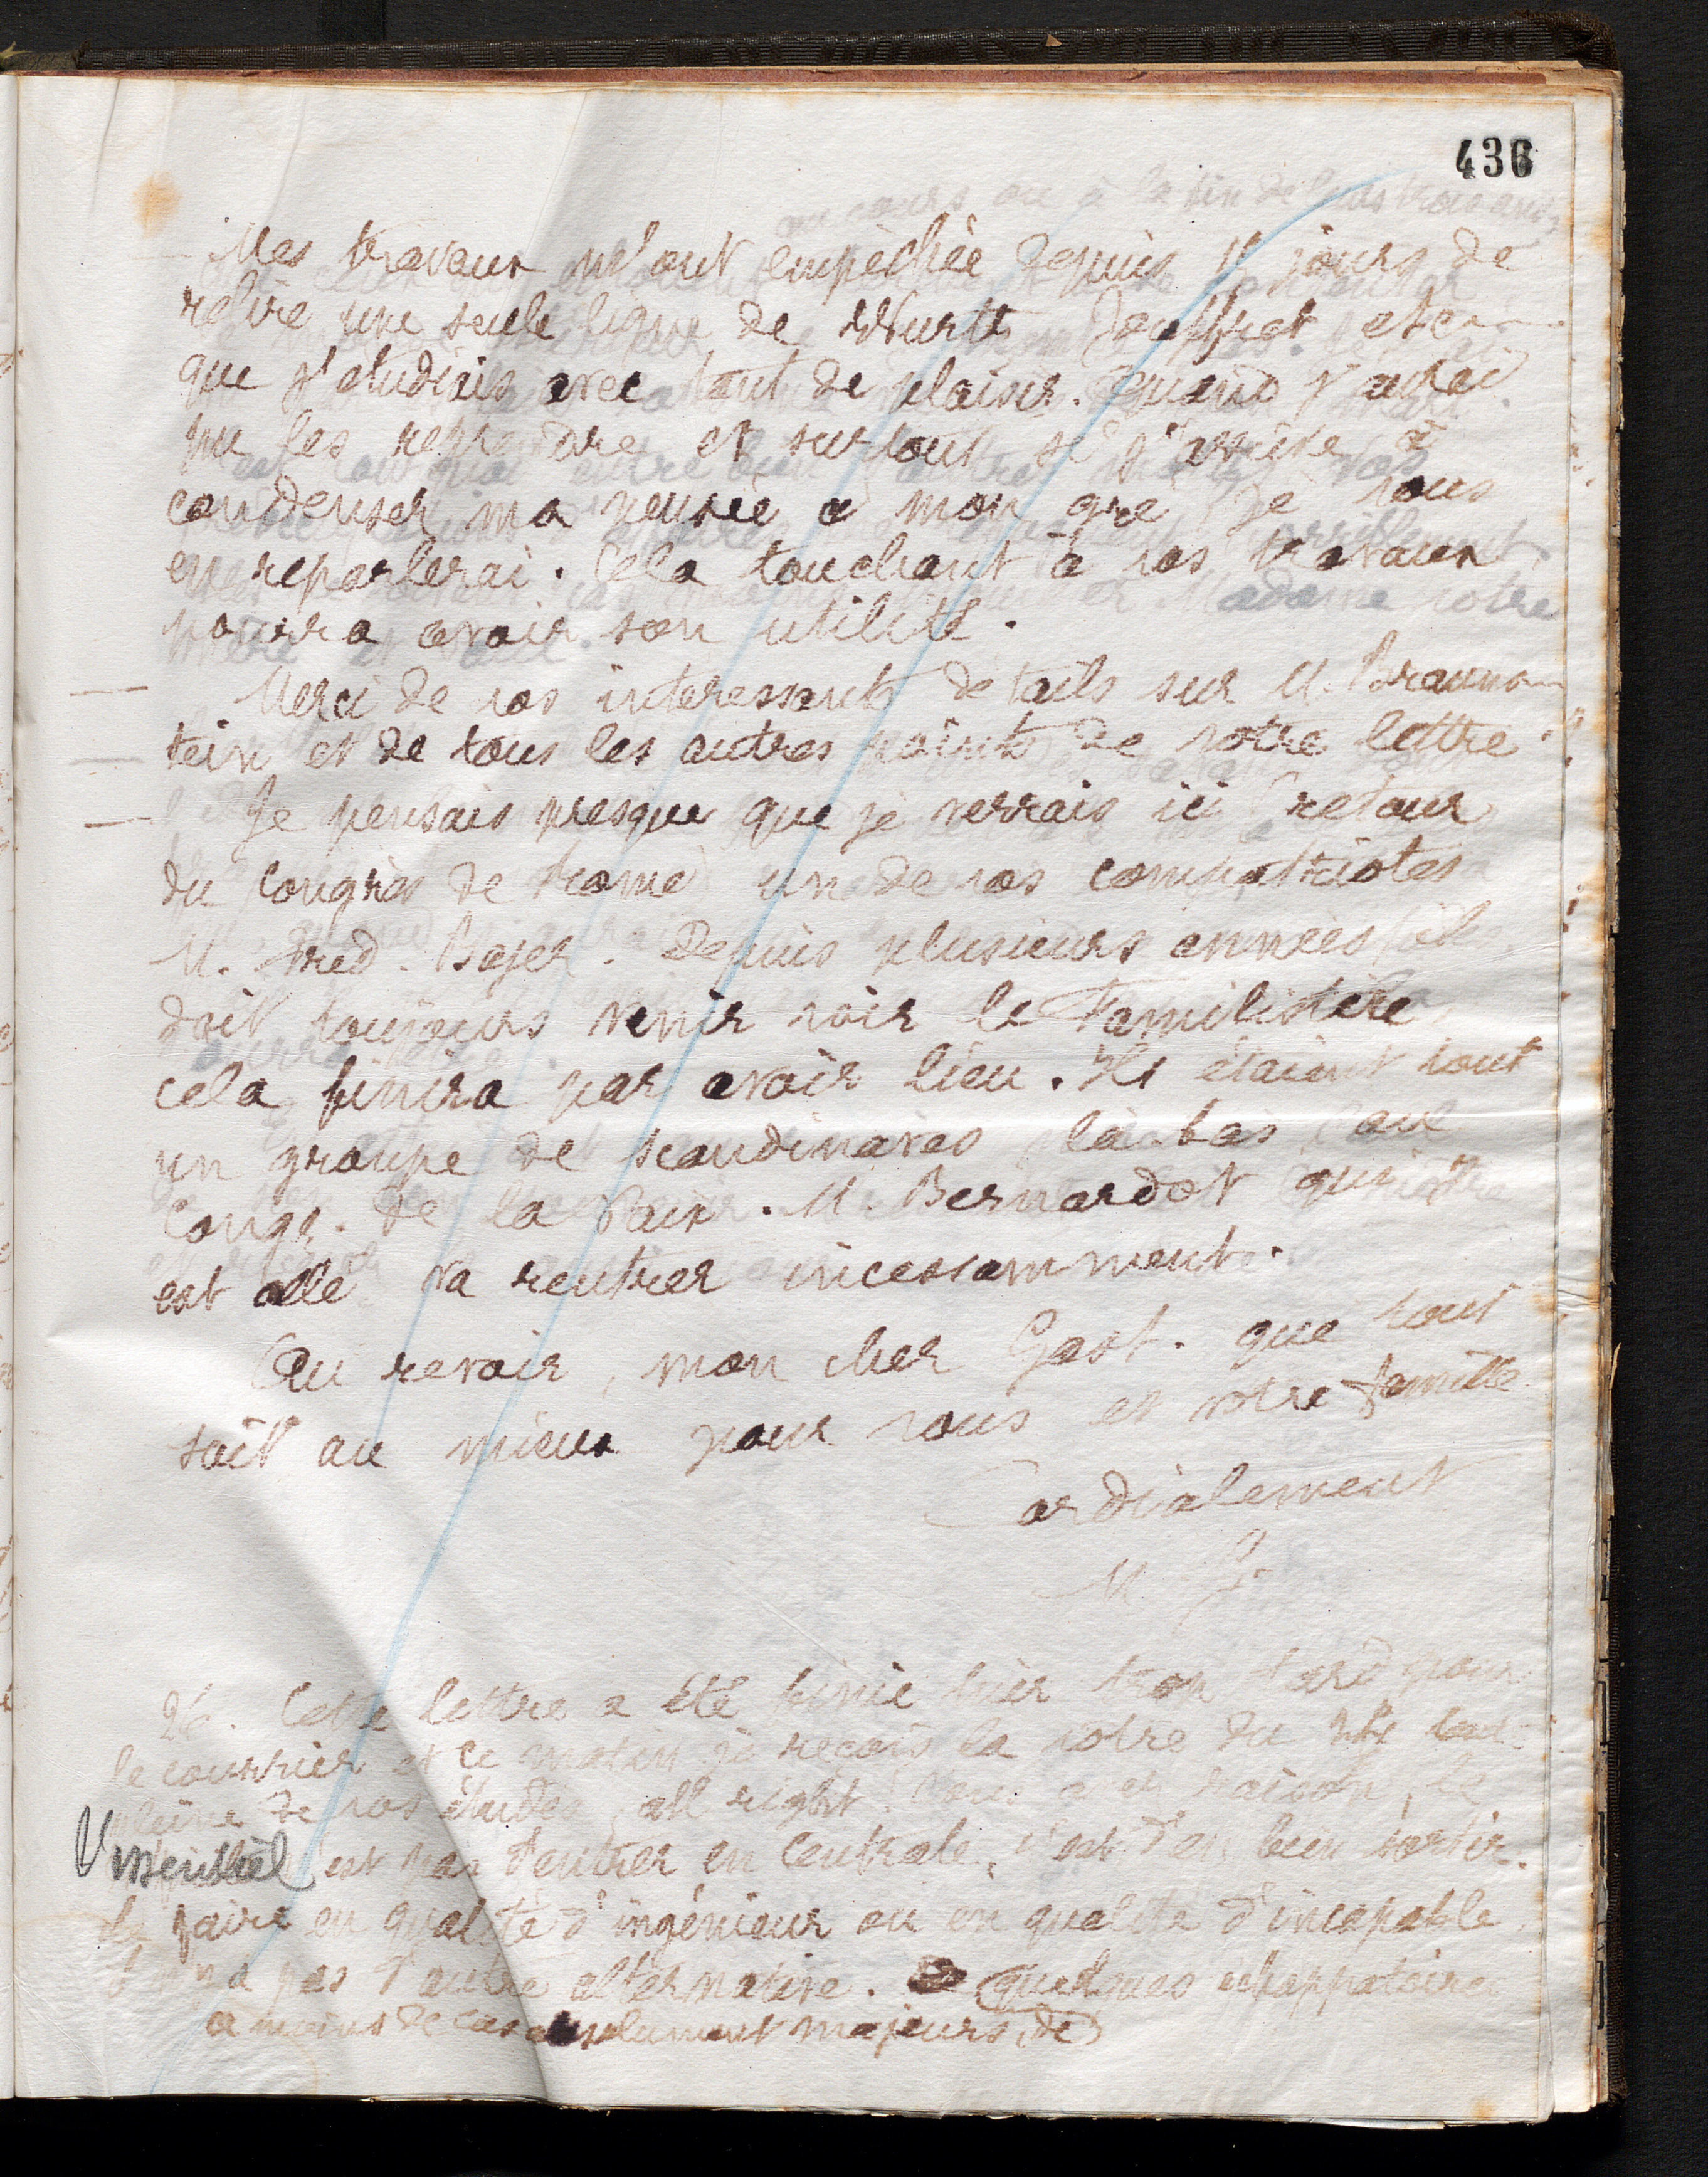 436
Mes travaux m'ont empêchée depuis jours de
relire une seule ligne de Wurtz Jouffret etc
que j'étudiais avec tant de plaisir. Quand j'aurai
pu les reprendre et surtout si j'arrive à
condenser ma pensée à mon gré je vous
en reparlerai. Cela touchant à vos travaux
pourra avoir son utilité.
Merci de vos intéressants détails sur M. Brauns-
tein et de tous les autres points de votre lettre
Je pensais presque que je verrais ici (retour
du Congrès de Rome) un de vos compatriotes
M. Fred. Bajer. Depuis plusieurs années il
doit toujours venir voir le Familistère
cela finira par avoir lieu. Ils étaient tout
un groupe de scandinaves là-bas au
Congr. de la Paix. M. Bernardot qui y
est allé va rentrer incessamment.
Au revoir, mon cher Gast. que tout
soit au mieux pour vous et votre famille
Cordialement
M. G.
26. Cette lettre a été finie hier trop tard pour
le courrier et ce matin je reçois la votre du 24
pleine de vos études, all right. Vous avez raison, le
essentiel est pas d'entrer en Centrale, c'est d'en bien sortir.
de faire en qualité d'ingénieur ou en qualité d'incapable
il n'y a pas d'autre alternative. quelques échappatoires
à moins de cas absolument majeurs, de